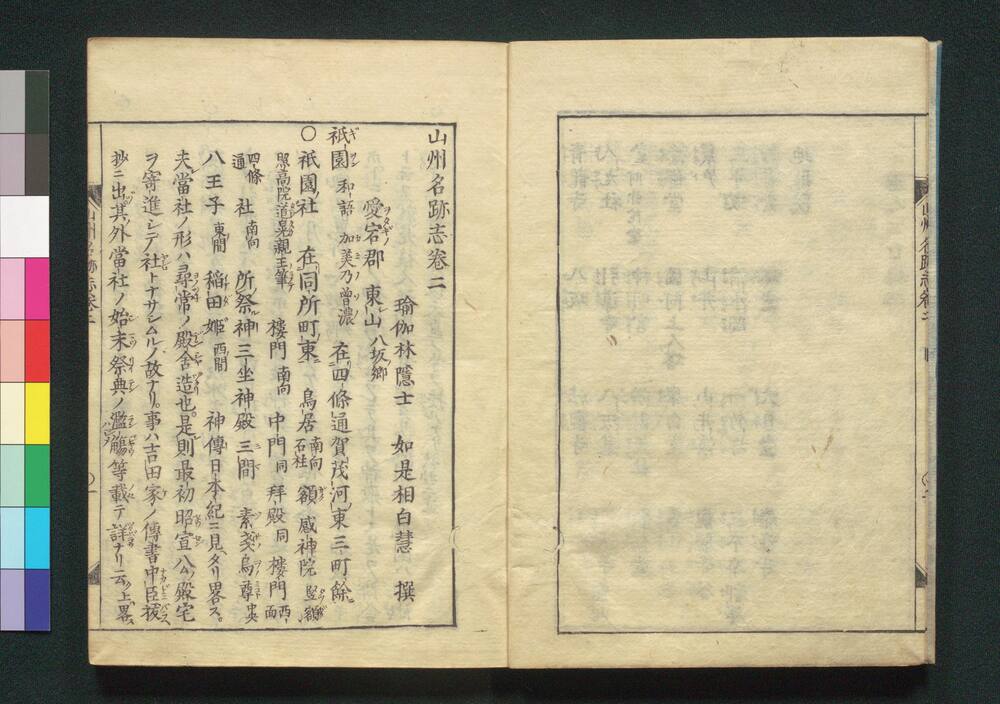 山州名跡志卷二
瑜伽林隱士　如是相白慧　撰
愛宕郡　東山八坂郷
祇園　和語　加美乃曽濃　在四條通賀茂河東三町餘
○祇園社　在同所町東　鳥居南向石柱　額感神院竪額
照高院道晃親王筆　樓門南向　中門同　拜殿同　樓門西面
四條通　社南向　所祭神三坐神殿三間　素戔烏尊中央
八王子東間　稲田姫西間　神傳日本紀ニ見タリ畧ス。
夫當社ノ形ハ尋常ノ殿舍造也。是則最初昭宣公殿宅
ヲ寄進シテ社トナサシムルノ故ナリ。事ハ吉田家ノ傳書中臣祓
抄ニ出其外當社ノ始末祭典ノ濫觴等載テ詳ナリ云云上畧
山州名跡志卷二
山州名跡志卷二